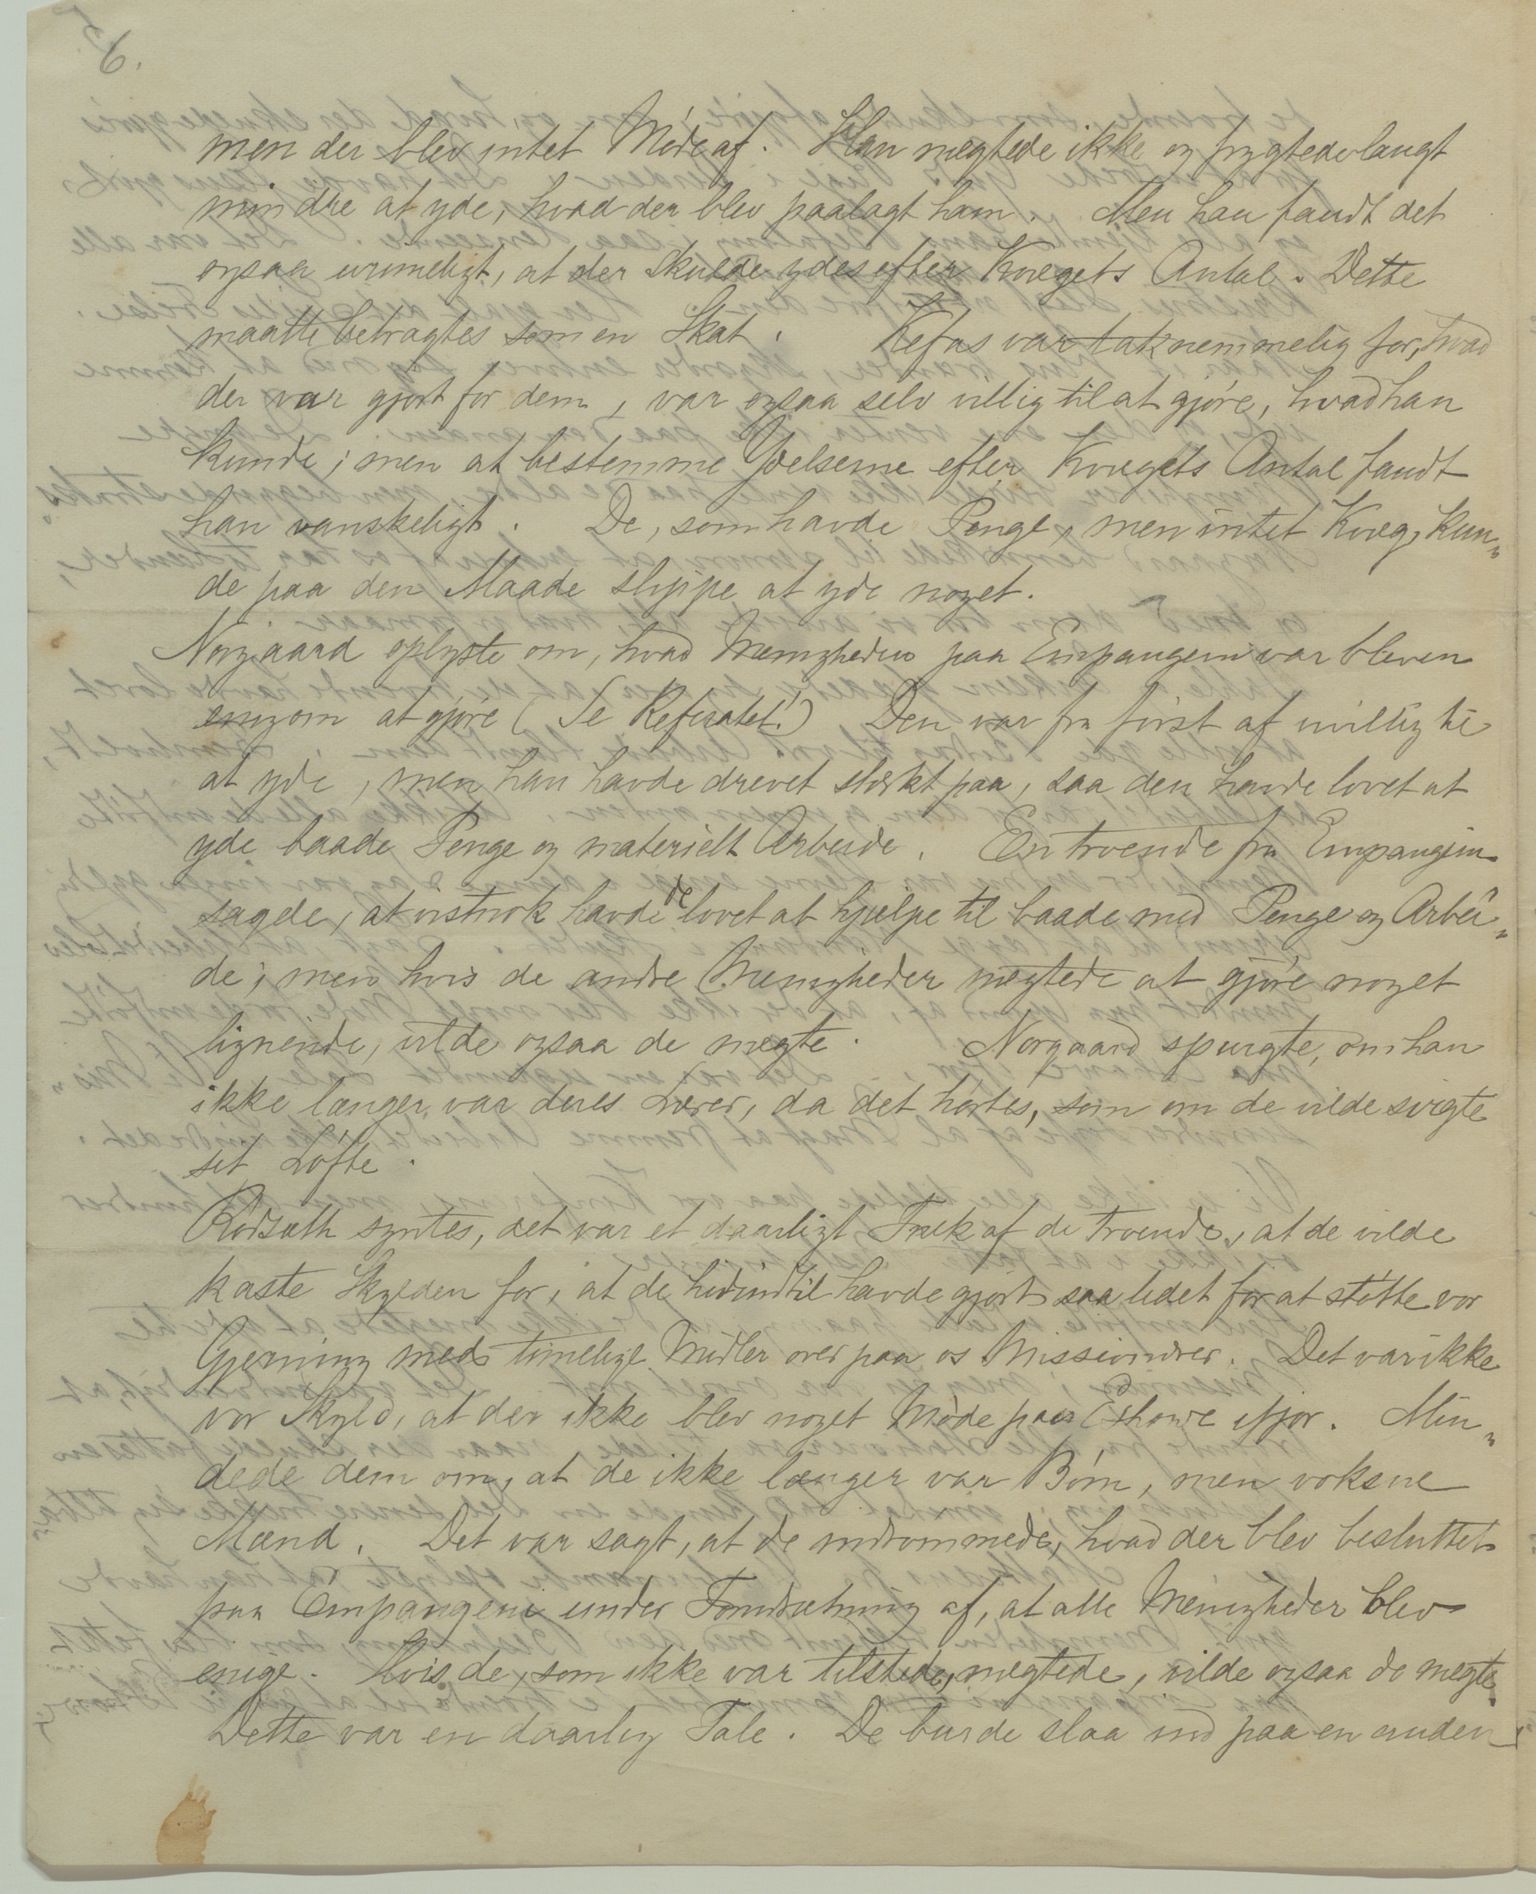 6.
men der blev intet Møde af. Han negtede ikke og frygtede langt
mindre at yde, hvad der blev paalagt ham. Men han fandt det
ogsaa urimeligt, at der skulde ydes efter Kvegets Antal. Dette
maatte betragtes som en Skat. Kefas var taknemmelig for, hvad
der var gjort for dem, var ogsaa selv villig til at gjøre, hvad han
kunde; men at bestemme Ydelserne efter Kvegets Antal fandt
han vanskeligt. De, som havde Penge, men intet Kveg, kun„
de paa den Maade slippe at yde noget.
Norgaard oplyste om, hvad Menigheden paa Empangeni var bleven
enig om at gjøre (Se Referatet!) Den var fra først af uvillig til
at yde, men han havde drevet sterkt paa, saa den havde lovet at
yde baade Penge og materielt Arbeide. En troende fra Empangeni
sagde, at vistnok havde de lovet at hjelpe til baade med Penge og Arbei„
de; men hvis de andre Menigheder negtede at gjøre noget
lignende, vilde ogsaa de negte. Norgaard spurgte, om han
ikke længer var deres Lærer, da det hørtes, som om de vilde svigte
sit Løfte.
Rødseth syntes, det var et daarligt Træk af de troende, at de vilde
kaste Skylden for, at de hidindtil havde gjort saa lidet for at støtte vor
Gjerning med timelige Midler over paa os Missionærer. Det var ikke
vor Skyld, at der ikke blev noget Møde paa Eshowe ifjor. Min„
dede dem om, at de ikke længer var Børn, men voksne
Mænd. Det var sagt, at de indrømmede, hvad der blev besluttet
paa Empangeni under Forudsætning af, at alle Menigheder blev
enige. Hvis de, som ikke var tilstede, negtede, vilde ogsaa de negte.
Dette var en daarlig Tale. De burde slaa ind paa en anden